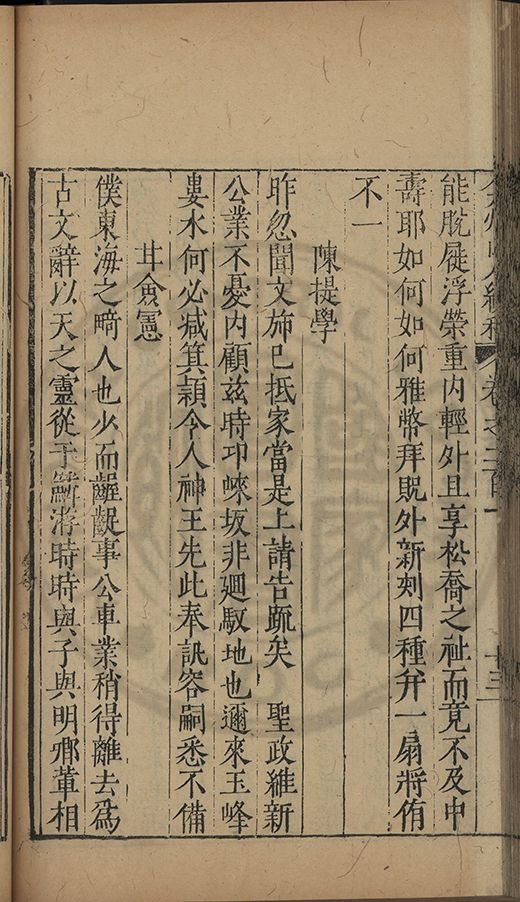 能脫屣浮榮重內輕外且享松喬之祉而竟不及中
壽耶如何如何雅幣拜貺外新刻四種并一扇將侑
不一
陳提學
昨忽聞文斾已抵家當是上請告疏矣 聖政維新
公業不憂內顧茲時卭崍坂非迴馭地也邇來玉峰
婁水何必減箕潁令人神王先此奉訊容嗣悉不備
甘僉憲
僕東海之畸人也少而齷齪事公車業稍得離去爲
古文辭以天之靈從于鱗游時時與子與明卿輩相